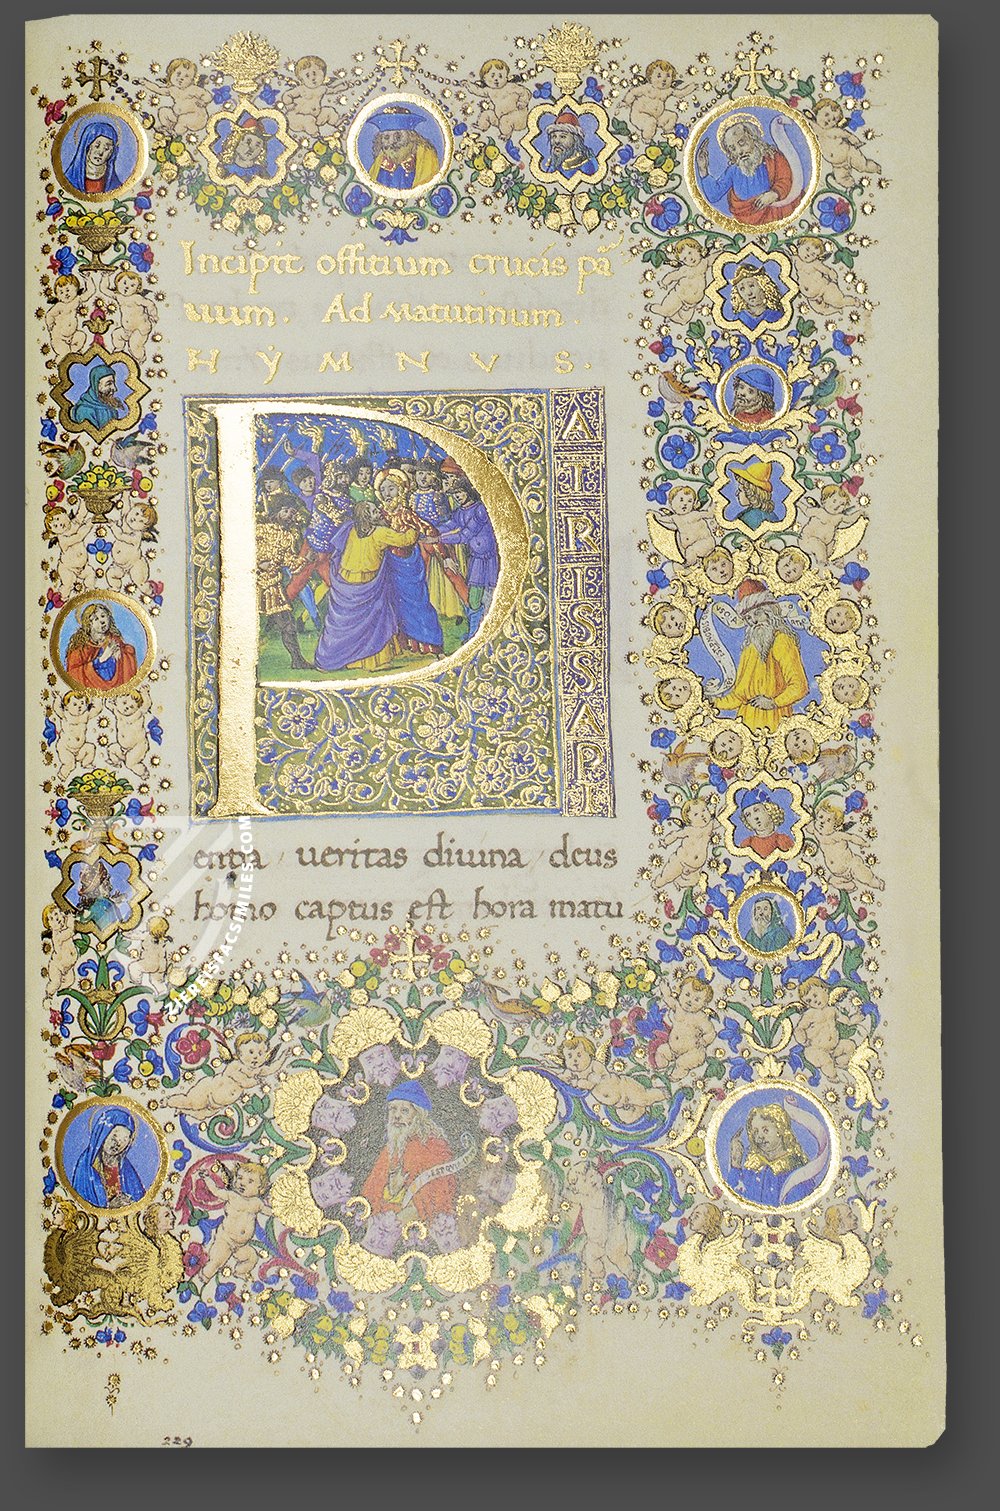 Incipit offitium crucis pa
uum. Ad Matutinum.
HYMNVS.
P
ATRISSAPI
entia / ueritas diuina / deus
homo captus est hora matu
229
ZIEREISFACSIMILES.COM